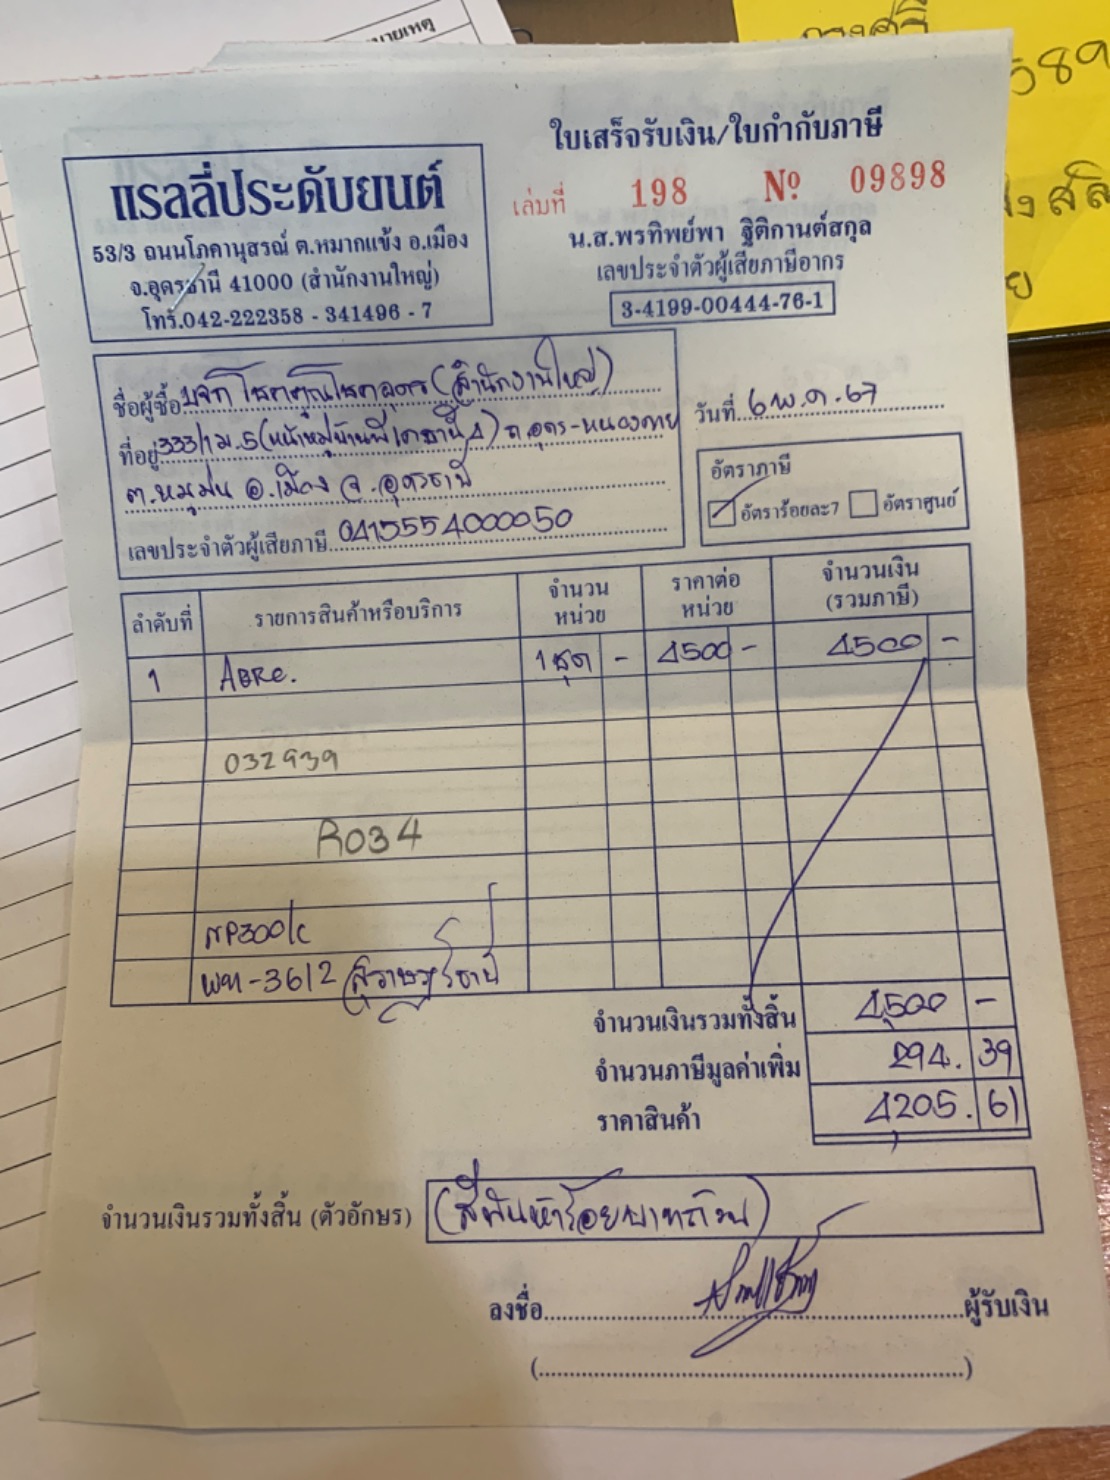 มายเหตุ
589
ใบเสร็จรับเงิน/ใบกำกับภาษี
แรลลี่ประดับยนต์
53/3 ถนนโภคานุสรณ์ ต.หมากแข้ง อ.เมือง
จ.อุดรธานี 41000 (สำนักงานใหญ่)
โทร.042-222358 - 341496 - 7
เล่มที่ 198 Nº 09898
น.ส.พรทิพย์พา ฐิติกานต์สกุล
เลขประจำตัวผู้เสียภาษีอากร
3-4199-00444-76-1
ชื่อผู้ซื้อ บจก โชคคูณโชคอุดร (สำนักงานใหญ่)
ที่อยู่ 333/1 ม.5 (หน้าหมู่บ้านพีเคธานี 4) ถ.อุดร-หนองคาย
ต.หมูม่น อ.เมือง จ.อุดรธานี
เลขประจำตัวผู้เสียภาษี 0415554000050
วันที่ 6 พ.ค. 67
อัตราภาษี
อัตราร้อยละ7 อัตราศูนย์
ลำดับที่ รายการสินค้าหรือบริการ จำนวนหน่วย ราคาต่อหน่วย จำนวนเงิน (รวมภาษี)
1 ABRC. 1 ชุด - 4500 - 4500 -
032939
R034
NP300/C
3612 สุราษฎร์ธานี
จำนวนเงินรวมทั้งสิ้น 4,500 -
จำนวนภาษีมูลค่าเพิ่ม 294. 39
ราคาสินค้า 4,205. 61
จำนวนเงินรวมทั้งสิ้น (ตัวอักษร) (สี่พันห้าร้อยบาทถ้วน)
ลงชื่อ ผู้รับเงิน